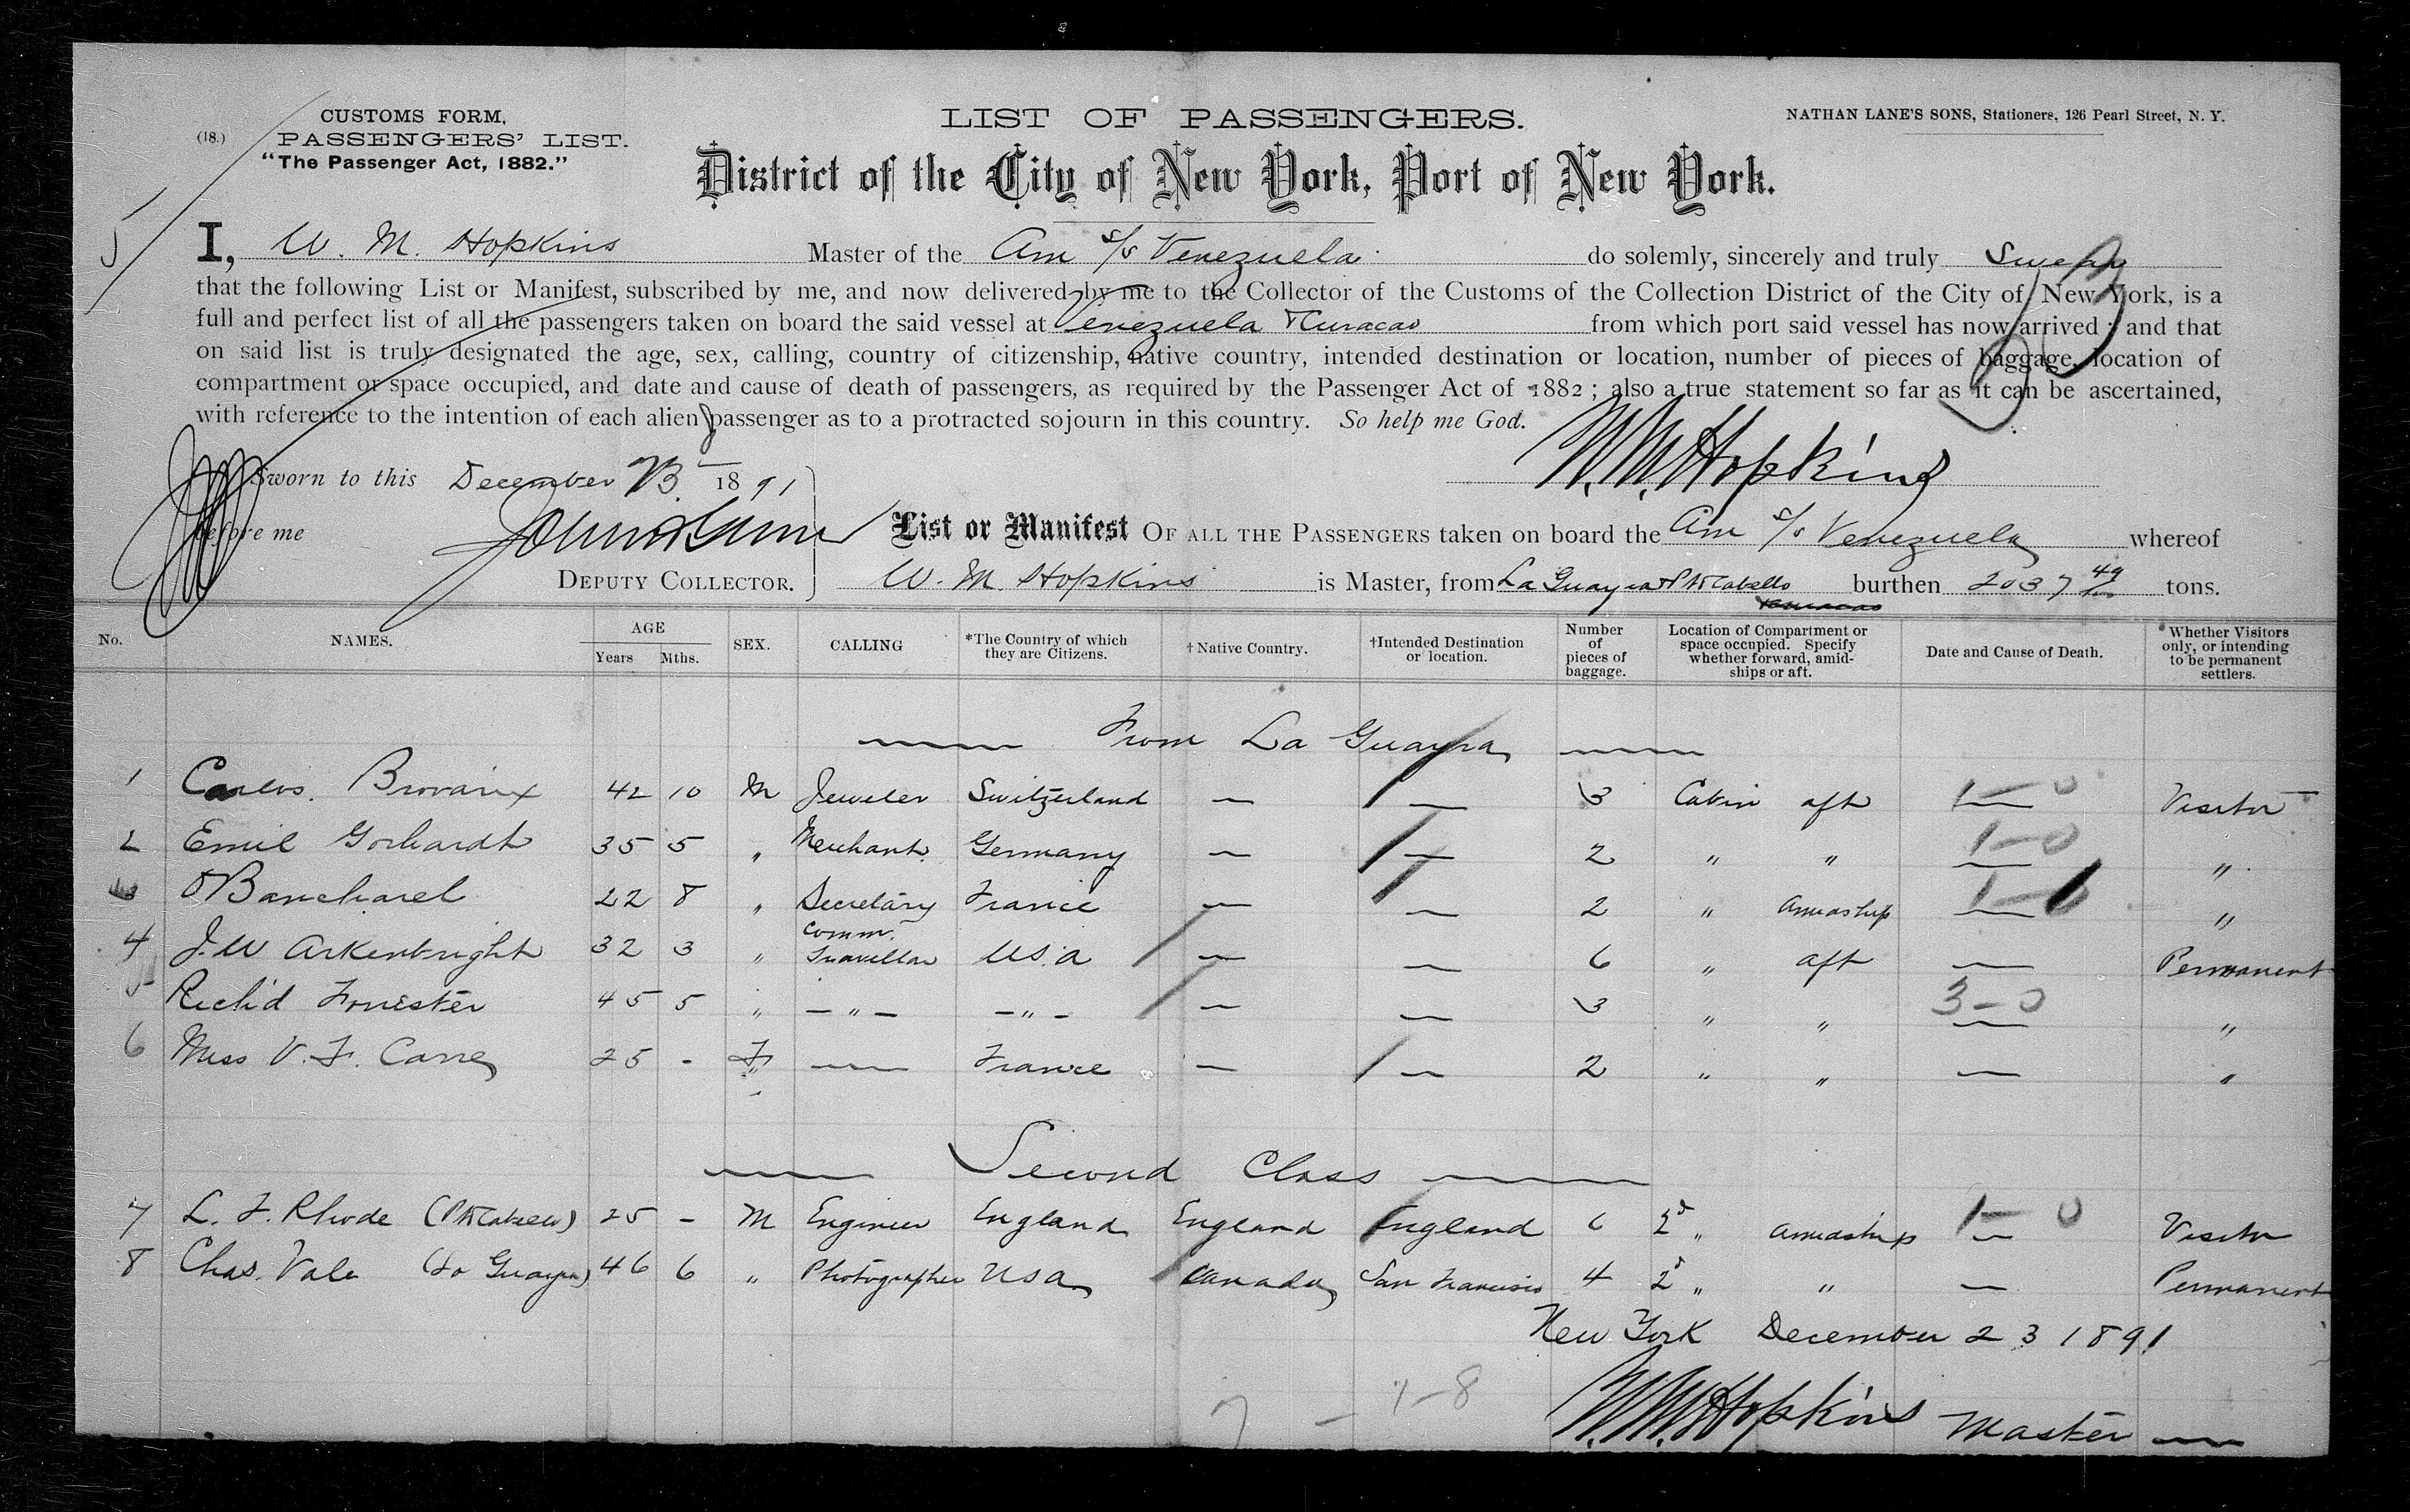 CUSTOMS FORM,
(18.) PASSENGERS' LIST.
"The Passenger Act, 1882."
LIST OF PASSENGERS.
NATHAN LANE'S SONS, Stationers, 126 Pearl Street, N. Y.
District of the City of New York, Port of New York.
I, W. M. Hopkins Master of the Am S/S Venezuela do solemnly, sincerely and truly Swear
that the following List or Manifest, subscribed by me, and now delivered by me to the Collector of the Customs of the Collection District of the City of New York, is a
full and perfect list of all the passengers taken on board the said vessel at Venezuela & Curacao from which port said vessel has now arrived ; and that
on said list is truly designated the age, sex, calling, country of citizenship, native country, intended destination or location, number of pieces of baggage, location of
compartment or space occupied, and date and cause of death of passengers, as required by the Passenger Act of 1882 ; also a true statement so far as it can be ascertained,
with reference to the intention of each alien passenger as to a protracted sojourn in this country. So help me God.
W. M. Hopkins
Sworn to this December 23 1891
before me
List or Manifest OF ALL THE PASSENGERS taken on board the Am S/S Venezuela whereof
DEPUTY COLLECTOR. W. M. Hopkins is Master, from La Guayra & Pto Cabello burthen 2037 49/100 tons.
No. NAMES. AGE Years Mths. SEX. CALLING *The Country of which they are Citizens. †Native Country. †Intended Destination or location. Number of pieces of baggage. Location of Compartment or space occupied. Specify whether forward, amidships or aft. Date and Cause of Death. *Whether Visitors only, or intending to be permanent settlers.
From La Guayra
1 Carlos 42 10 M Jeweler Switzerland — — 3 Cabin aft — 1-0 Visitor
2 Emil Gorhardt 35 5 " Merchant Germany — — 2 " " — 1-0 "
3 22 8 " Secretary France — — 2 " Amidship — "
4 J. W Arkenbright 32 3 " Comm. Travellor U.S.A — — 6 " aft — Permanent
5 Rich'd Forrester 45 5 " — " — — " — — — 3 " " — 3-0 "
6 Miss V. F. Carrey 25 - F — France — — 2 " " — "
Second Class
7 L. F. Rhode (Pto Cabello) 25 - M Engineer England England England 6 2d " Amidships — 1-0 Visitor
8 Chas. Vale (La Guayra) 46 6 " Photographer USA Canada San Francisco 4 2d " " — Permanent
New York December 23 1891
7 - 1-8
W. M. Hopkins Master